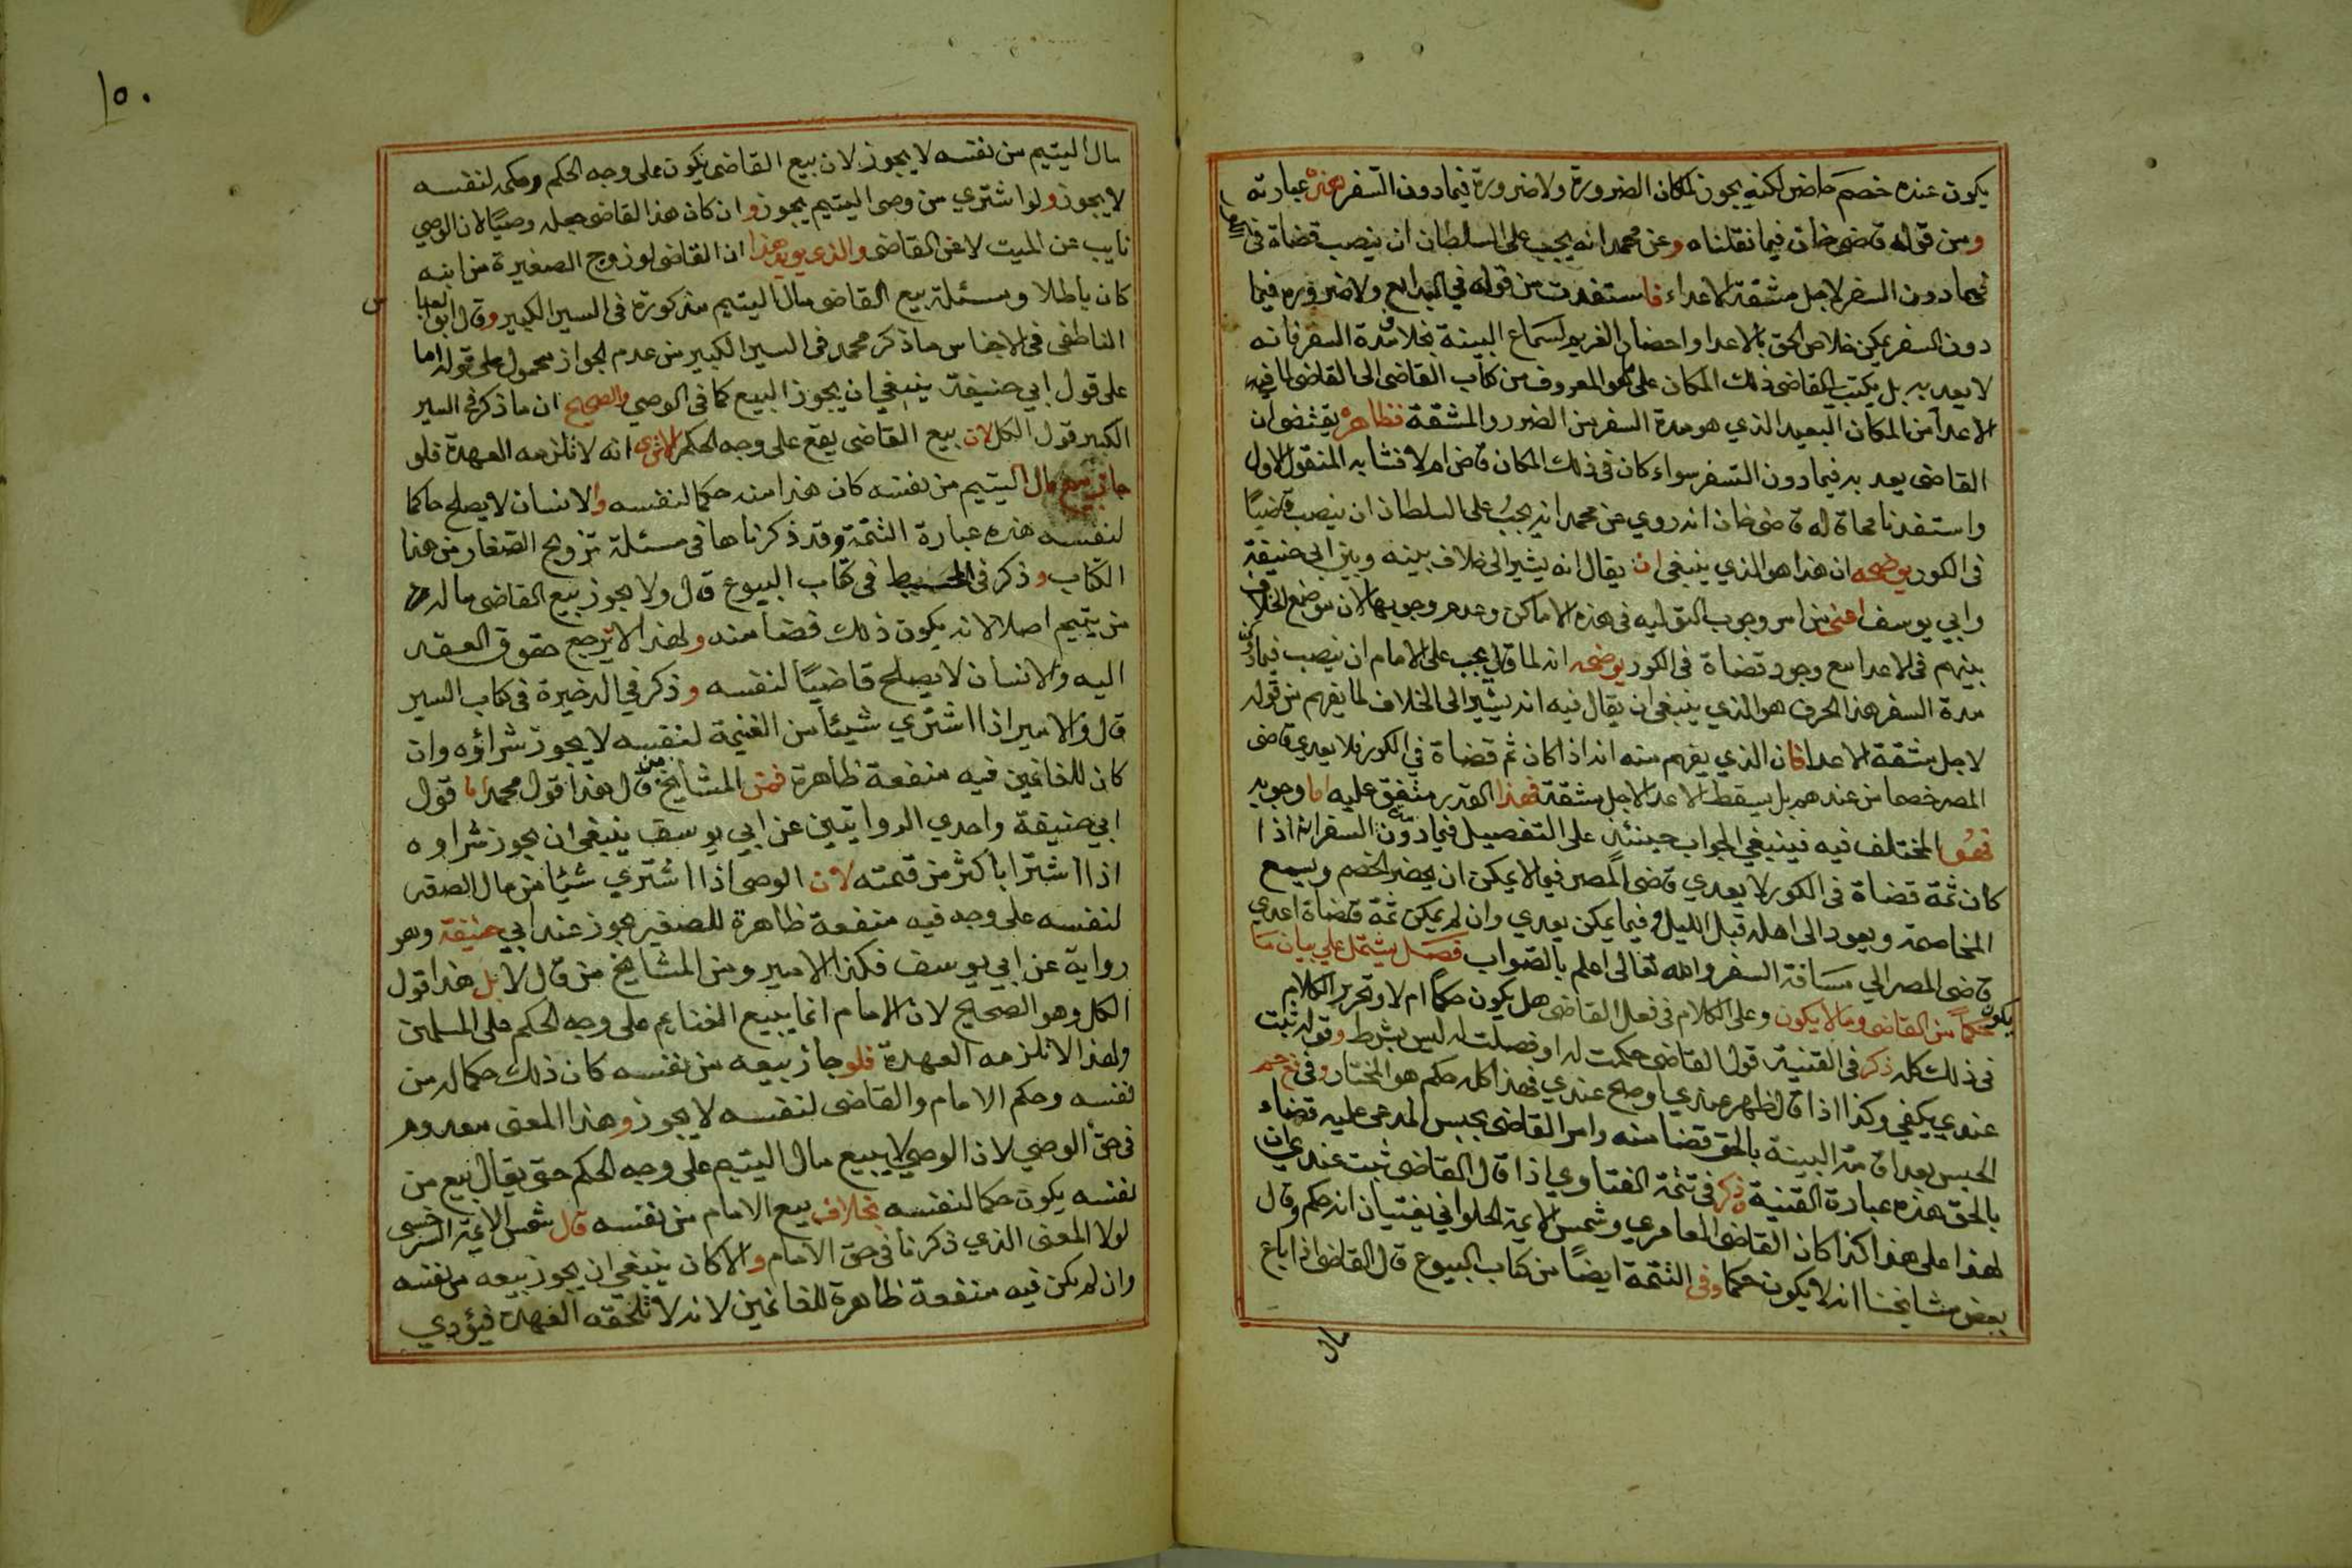 يكون عنده خصم حاضر لكنه يجوز لمكان الضرورة ولا ضرورة فيما دون السفر هذه عبارته
ومن قوله قاضي خان فيما نقلناه وعن محمد انه يجب على السلطان ان ينصب قضاة في
فيما دون السفر لاجل مشقة الاعداء فاستفدت من قوله في البدايع ولا ضرورة فيما
دون السفر يمكن خلاص الحق بالاعدا واحضار الغريم لسماع البينة بخلاف مدة السفر فانه
لا يعد به بل يكتب القاضي ذلك المكان على ما هو المعروف من كتاب القاضي الى القاضي لما فيه
الاعدا من المكان البعيد الذي هو مدة السفر من الضرر والمشقة فظاهره يقتضي ان
القاضي يعد به فيما دون السفر سواء كان في ذلك المكان قاض ام لا فشابه المنقول الاول
واستفدنا مما قاله قاضي خان انه روي عن محمد انه يجب على السلطان ان ينصب قاضيًا
في الكور يوضحه ان هذا هو الذي ينبغي ان يقال انه يشير الى خلاف بينه وبين ابي حنيفة
وابي يوسف اعني من امر وجوب التولية في هذه الاماكن وعدم وجوبها لان موضع الخلاف
بينهم في الاعدا مع وجود قضاة في الكور يوضحه انه لما قال يجب على الامام ان ينصب فيما دون
مدة السفر هذا الحرف هو الذي ينبغي ان يقال فيه انه يشير الى الخلاف لما يفهم من قوله
لاجل مشقة الاعدا فان الذي يفهم منه انه اذا كان ثم قضاة في الكور فلا يعدي قاضي
المصر خصما من عندهم بل يسقط الاعدا لاجل مشقة فهذا القدر متفق عليه اما وجوبه
فهو المختلف فيه فينبغي الجواب حينئذ على التفصيل فيما دون السفر انه اذا
كان ثمة قضاة في الكور لا يعدي قاضي المصر فيما لا يمكن ان يحضر الخصم ويسمع
المخاصمة ويعود الى اهله قبل الليل وفيما يمكن يعدي وان لم يكن ثمة قضاة اعدي
قاضي المصر الي مسافة السفر والله تعالى اعلم بالصواب فصل يشتمل على بيان ما
يكون حكماً من القاضي وما لا يكون وعلى الكلام في فعل القاضي هل يكون حكماً ام لا وتحرير الكلام
في ذلك كله ذكر في القنية قول القاضي حكمت له او فصلت له ليس بشرط وقوله ثبت
عندي يكفي وكذا اذا قال ظهر عندي او صح عندي فهذا كله حكم هو المختار وفي
الحبس بعد اقامة البينة بالحق قضا منه وامر القاضي بحبس المدعى عليه قضاء
بالحق هذه عبارة القنية ذكر في تتمة الفتاوي اذا قال القاضي ثبت عندي ان
لهذا على هذا كذا كان القاضي العامري وشمس الايمة الحلواني يفتيان انه حكم وقال
بعض مشايخنا انه لا يكون حكما وفي التتمة ايضًا من كتاب البيوع قال القاضي اذا باع
مال
١٥٠
مال اليتيم من نفسه لا يجوز لان بيع القاضي يكون على وجه الحكم وحكمه لنفسه
لا يجوز ولو اشتري من وصي اليتيم يجوز وان كان هذا القاضي جعله وصيًا لان الوصي
نايب عن الميت لا عن القاضي والذي يويد هذا ان القاضي لو زوج الصغيرة من ابنه
كان باطلا ومسئلة بيع القاضي مال اليتيم مذكورة في السير الكبير وقال ابو العباس
الناطفي في الاجناس ما ذكر محمد في السير الكبير من عدم الجواز محمول على قوله اما
على قول ابي حنيفة ينبغي ان يجوز البيع كما في الوصي والصحيح ان ما ذكر في السير
الكبير قول الكل لان بيع القاضي يقع على وجه الحكم الا ترى انه لا تلزمه العهدة فلو
جاز بيع مال اليتيم من نفسه كان هذا منه حكما لنفسه والانسان لا يصلح حاكما
لنفسه هذه عبارة التتمة وقد ذكرناها في مسئلة تزويج الصغار من هذا
الكتاب وذكر في المحيط في كتاب البيوع قال ولا يجوز بيع القاضي ماله
من يتيم اصلا لانه يكون ذلك قضا منه ولهذا لا ترجع حقوق العقد
اليه والانسان لا يصلح قاضيًا لنفسه وذكر في الذخيرة في كتاب السير
قال والامير اذا اشتري شيئاً من الغنيمة لنفسه لا يجوز شراؤه وان
كان للغانمين فيه منفعة ظاهرة فمن المشايخ من قال هذا قول محمد اما قول
ابي حنيفة واحدي الروايتين عن ابي يوسف ينبغي ان يجوز شراوه
اذا اشترا باكثر من قيمته لان الوصي اذا اشتري شيًا من مال الصغير
لنفسه على وجه فيه منفعة ظاهرة للصغير يجوز عند ابي حنيفة وهو
رواية عن ابي يوسف فكذا الامير ومن المشايخ من قال لا بل هذا قول
الكل وهو الصحيح لان الامام انما يبيع الغنايم على وجه الحكم على المسلمين
ولهذا لا تلزمه العهدة فلو جاز بيعه من نفسه كان ذلك حكما له من
نفسه وحكم الامام والقاضي لنفسه لا يجوز وهذا المعنى معدوم
في حق الوصي لان الوصي لا يبيع مال اليتيم على وجه الحكم حتى يقال بيع من
نفسه يكون حكما لنفسه بخلاف بيع الامام من نفسه قال شمس الايمة السرخسي
لولا المعنى الذي ذكرنا في حق الامام والا كان ينبغي ان يجوز بيعه من نفسه
وان لم يكن فيه منفعة ظاهرة للغانمين لانه لا تلحقه العهدة فيؤدي